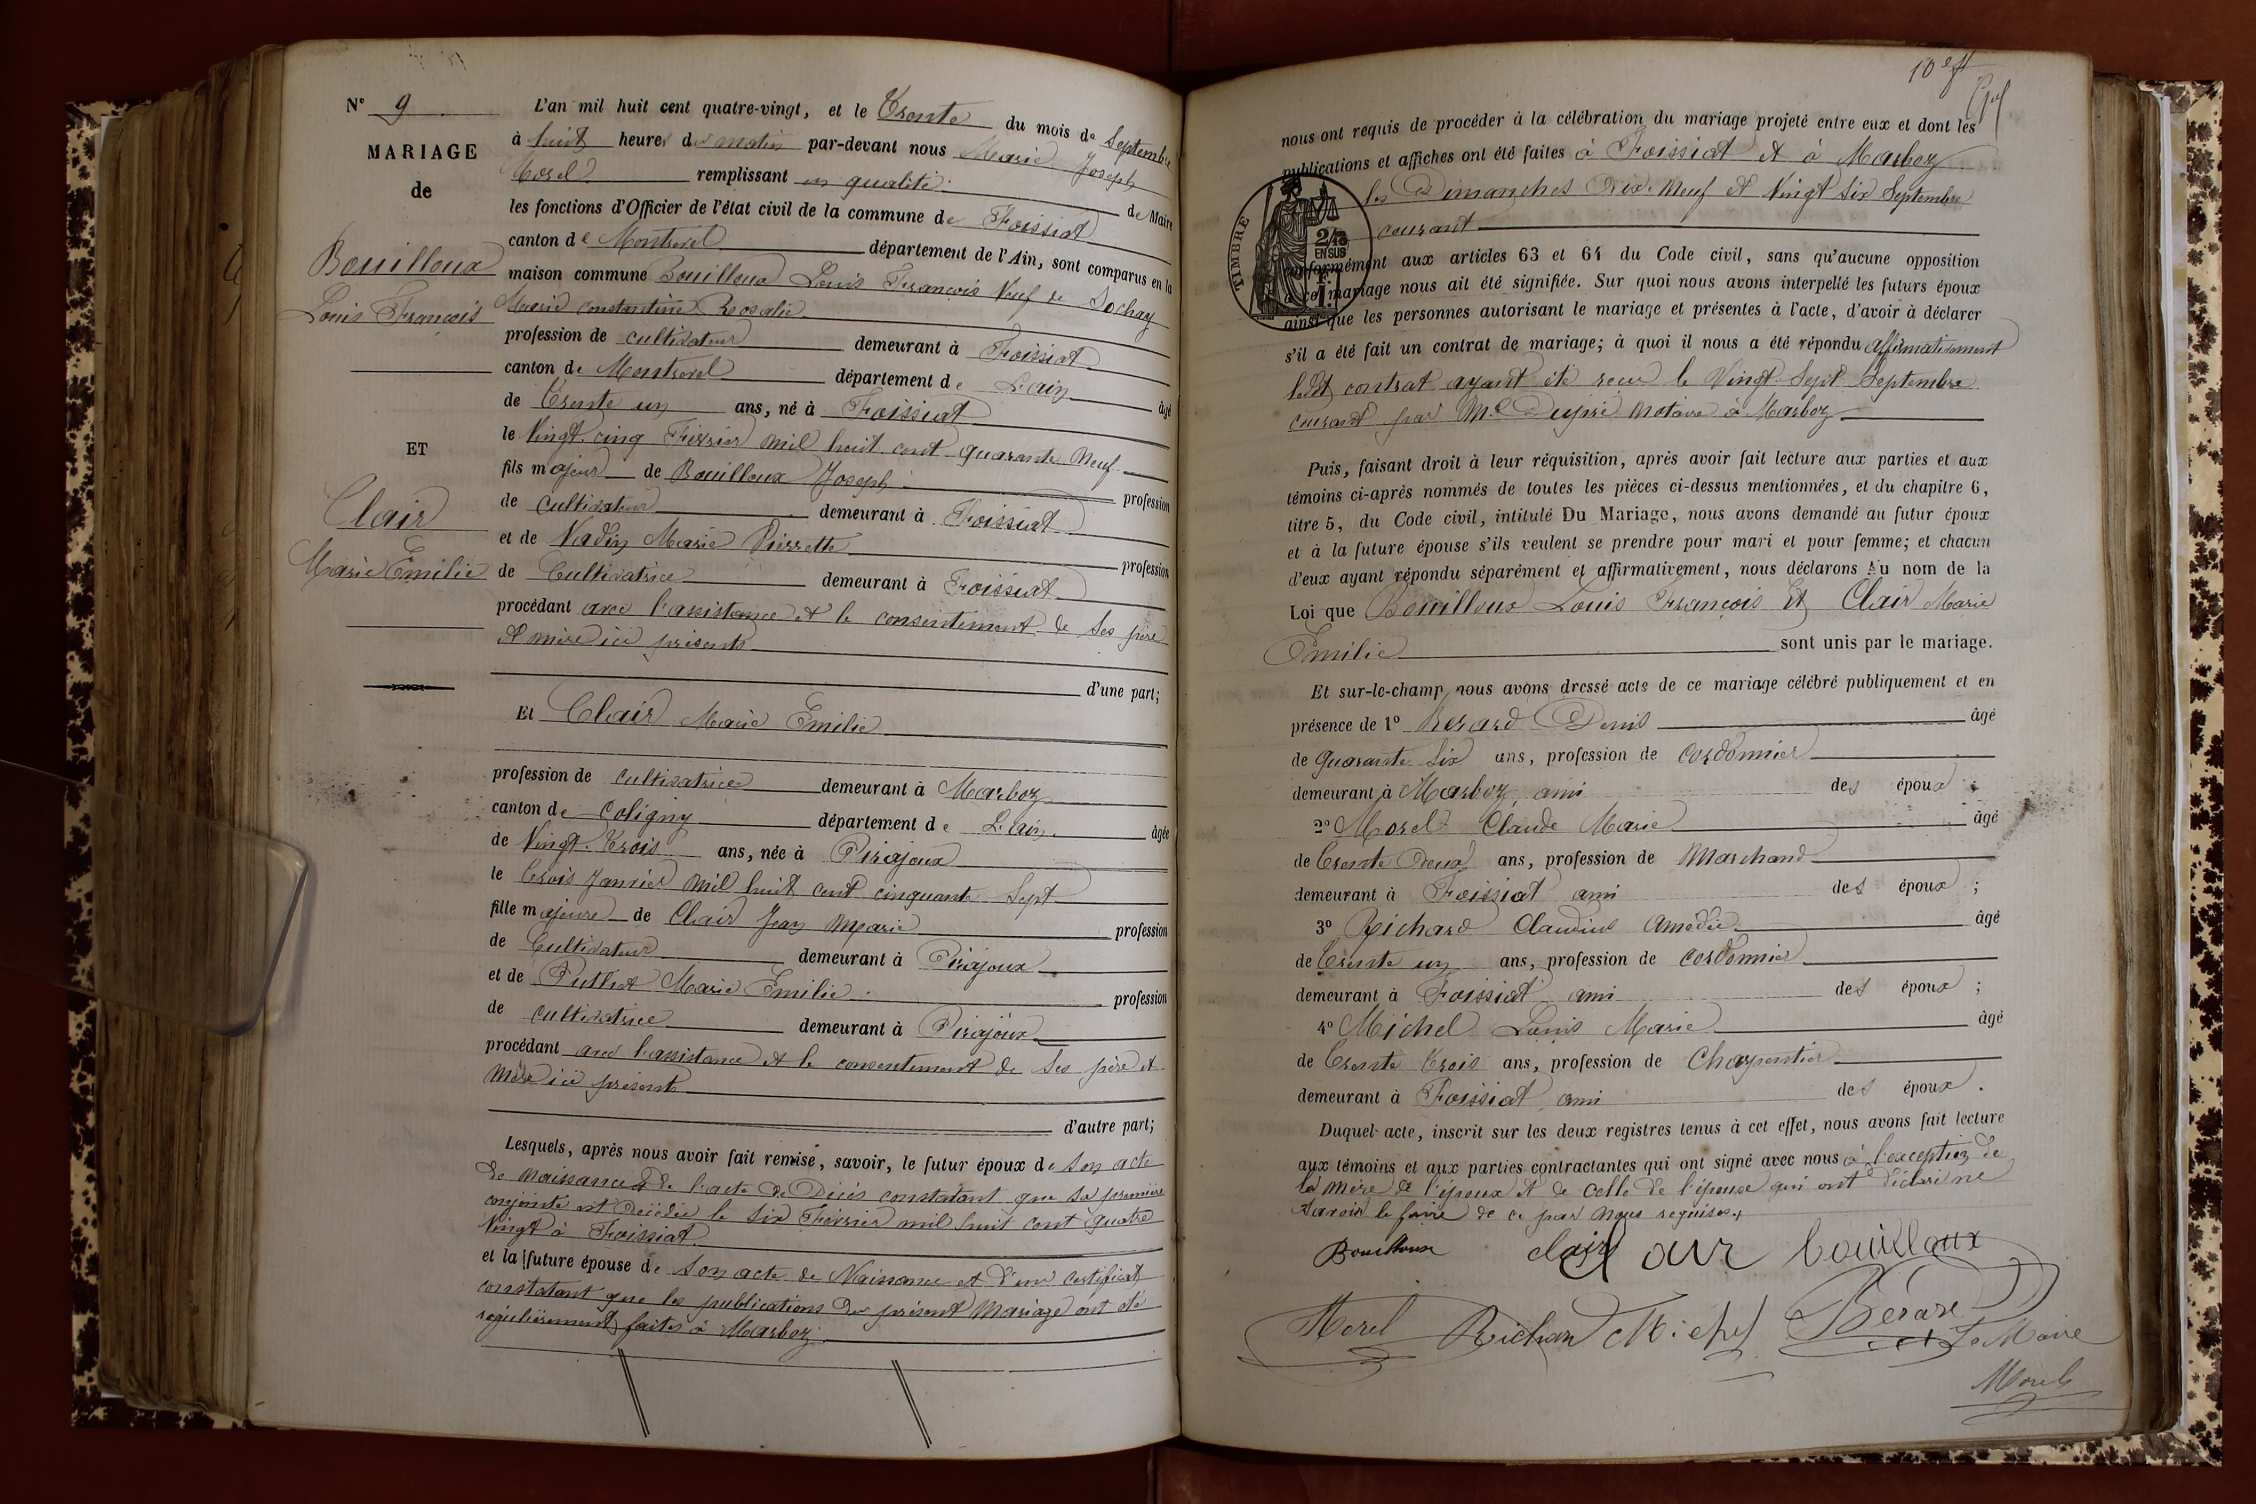 N° 9
MARIAGE
de
Bouilloux
Louis François
ET
Clair
Marie Emilie
L'an mil huit cent quatre-vingt, et le Trente du mois de Septembre
à huit heures du matin par-devant nous Marie Joseph
Morel remplissant en qualité de Maire
les fonctions d'Officier de l'état civil de la commune de Foissiat
canton de Montrevel département de l'Ain, sont comparus en la
maison commune Bouilloux Louis François Veuf de Sochay
Marie Constantine Rosalie
profession de cultivateur demeurant à Foissiat
canton de Montrevel département de L'ain âgé
de Trente un ans, né à Foissiat
le Vingt-cinq Février mil huit cent quarante Neuf
fils majeur de Bouilloux Joseph profession
de cultivateur demeurant à Foissiat
et de Nadin Marie Pierrette profession
de Cultivatrice demeurant à Foissiat
procédant avec l'assistance et le consentement de ses père
et mère ici présents
d'une part;
Et Clair Marie Emilie
profession de cultivatrice demeurant à Marboz
canton de Coligny département de L'ain âgée
de Vingt-Trois ans, née à Pirajoux
le Trois Janvier mil huit cent cinquante Sept
fille majeure de Clair Jean Marie profession
de Cultivateur demeurant à Pirajoux
et de Puthet Marie Emilie profession
de cultivatrice demeurant à Pirajoux
procédant avec l'assistance et le consentement de ses père et
mère ici présents
d'autre part;
Lesquels, après nous avoir fait remise, savoir, le futur époux de son acte
de naissance et de l'acte de Décès constatant que sa première
conjointe est décédée le six Février mil huit cent quatre
Vingt à Foissiat
et la future épouse de son acte de Naissance et d'un certificat
constatant que les publications du présent Mariage ont été
régulièrement faites à Marboz
10e ft
nous ont requis de procéder à la célébration du mariage projeté entre eux et dont les
publications et affiches ont été faites à Foissiat et à Marboz
les Dimanches Dix-Neuf et Vingt Six Septembre
courant
TIMBRE
2/10
EN SUS
conformément aux articles 63 et 64 du Code civil, sans qu'aucune opposition
à ce mariage nous ait été signifiée. Sur quoi nous avons interpellé les futurs époux
ainsi que les personnes autorisant le mariage et présentes à l'acte, d'avoir à déclarer
s'il a été fait un contrat de mariage; à quoi il nous a été répondu affirmativement
ledit contrat ayant été reçu le Vingt-Sept Septembre
courant par Me Dupré notaire à Marboz
Puis, faisant droit à leur réquisition, après avoir fait lecture aux parties et aux
témoins ci-après nommés de toutes les pièces ci-dessus mentionnées, et du chapitre 6,
titre 5, du Code civil, intitulé Du Mariage, nous avons demandé au futur époux
et à la future épouse s'ils veulent se prendre pour mari et pour femme; et chacun
d'eux ayant répondu séparément et affirmativement, nous déclarons Au nom de la
Loi que Bouilloux Louis François Et Clair Marie
Emilie sont unis par le mariage.
Et sur-le-champ nous avons dressé acte de ce mariage célébré publiquement et en
présence de 1° Berard Denis âgé
de quarante-six ans, profession de cordonnier
demeurant à Marboz, ami des époux ;
2° Morel Claude Marie âgé
de Trente Deux ans, profession de Marchand
demeurant à Foissiat ami des époux ;
3° Richard Claudius Amédée âgé
de Trente un ans, profession de cordonnier
demeurant à Foissiat ami des époux ;
4° Michel Louis Marie âgé
de Trente Trois ans, profession de Charpentier
demeurant à Foissiat ami des époux.
Duquel acte, inscrit sur les deux registres tenus à cet effet, nous avons fait lecture
aux témoins et aux parties contractantes qui ont signé avec nous à l'exception de
la mère de l'époux et de celle de l'épouse qui ont déclaré ne
savoir le faire de ce par nous requises
Bouilloux clair clair bouilloux
Morel Richard Michel Bérard
Le Maire
Morel